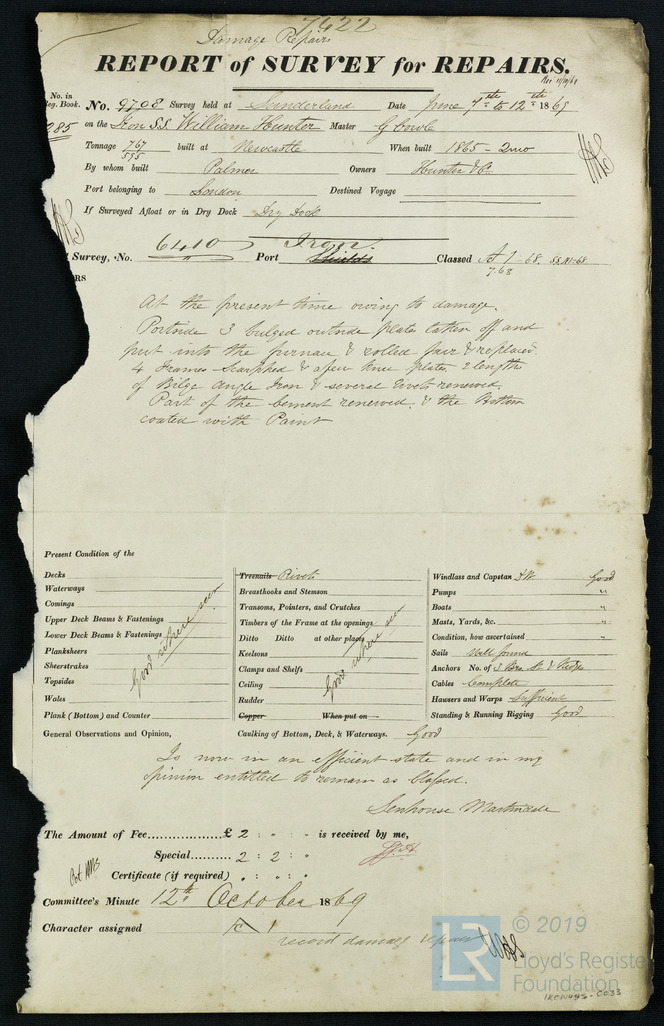 7422
Damage Repairs
REPORT of SURVEY for REPAIRS.
Rec 11/10/69
No. in Reg. Book. No. 9708 Survey held at Sunderland Date June 7th to 12th 1869
985 on the Iron S.S. William Hunter Master G Cowle
Tonnage 767/595 built at Newcastle When built 1865 - 2mo
By whom built Palmer Owners Hunter & Co
Port belonging to London Destined Voyage
If Surveyed Afloat or in Dry Dock Dry Dock
Survey, No. 6410 Port Shields Iron. Classed A1-68. SS.N1-68
7.68
RS
At the present time owing to damage.
Portside 3 bulged outside plates taken off and
put into the furnace & rolled fair & replaced.
4 Frames scarphed & a few knee plates, 2 lengths
of Bilge angle Iron & several rivets renewed.
Part of the Cement renewed, & the Bottom
coated with Paint
Present Condition of the
Decks
Waterways
Comings
Upper Deck Beams & Fastenings
Lower Deck Beams & Fastenings
Planksheers
Sheerstrakes
Topsides
Wales
Plank (Bottom) and Counter
Good where seen
Treenails Rivets
Breasthooks and Stemson
Transoms, Pointers, and Crutches
Timbers of the Frame at the openings
Ditto Ditto at other places
Keelsons
Clamps and Shelfs
Ceiling
Rudder
Copper When put on
Good where seen
Caulking of Bottom, Deck, & Waterways. Good
Windlass and Capstan Good
Pumps "
Boats "
Masts, Yards, &c. "
Condition, how ascertained "
Sails Well found
Anchors No. of 3 Bro. St. & Kedges
Cables Complete
Hawsers and Warps Sufficient
Standing & Running Rigging Good
General Observations and Opinion,
Is now in an efficient state and in my
opinion entitled to remain as Classed.
Senhouse Martindale
The Amount of Fee £ 2 : " : " is received by me,
Special 2 : 2 : "
Certificate (if required) " : " : "
Committee's Minute 12th October 1869
Character assigned
record damage repairs
© 2019
LR
Lloyd's Register
Foundation
IRON445-0033